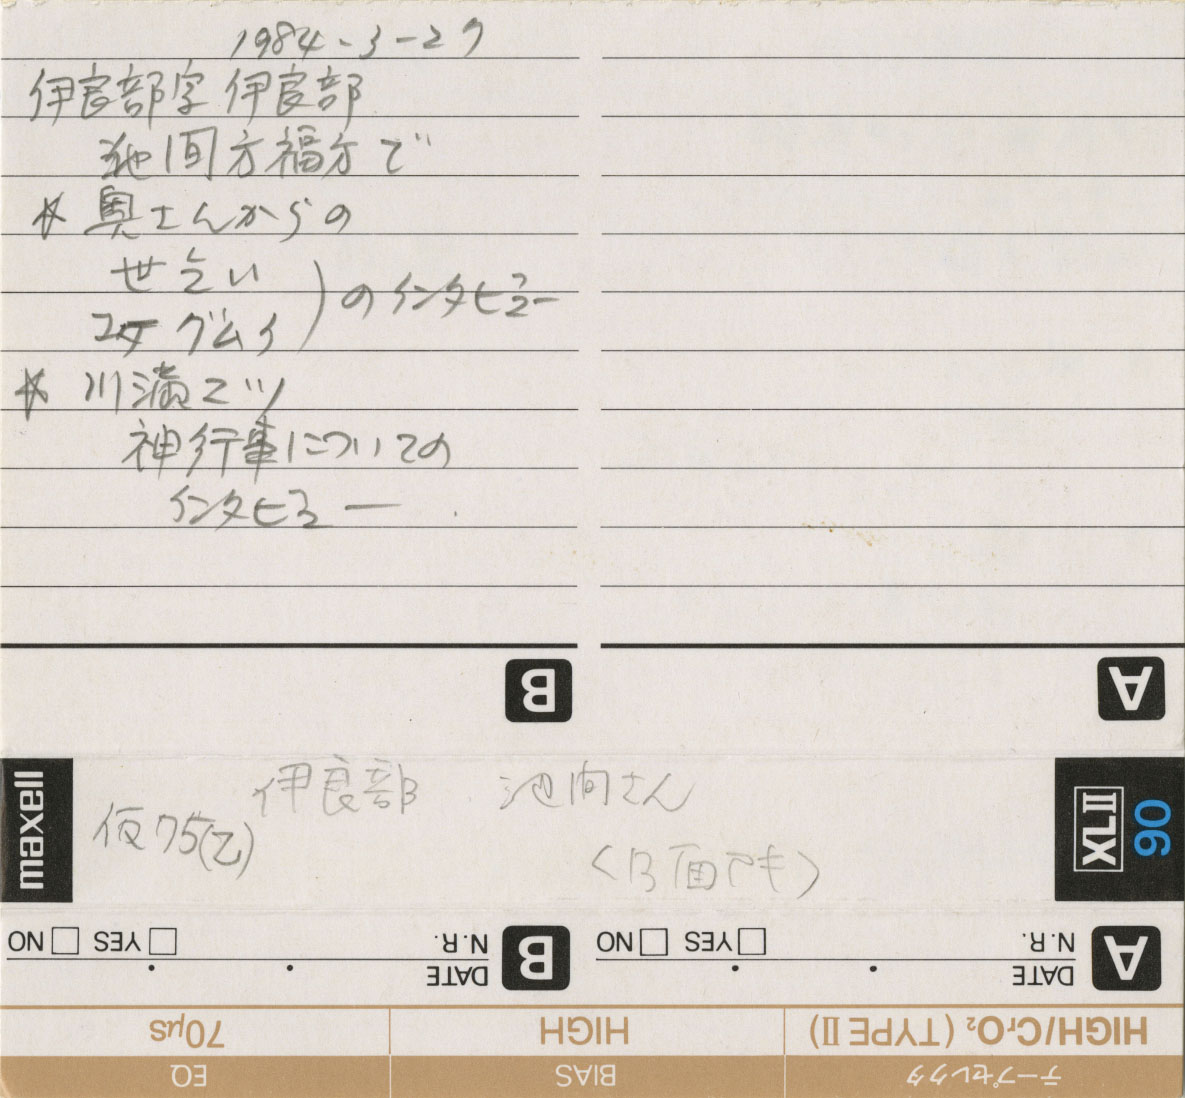 1984-3-27
伊良部字伊良部
池間方福方で
☆ 奥さんからの
せえい
ユダグムイ
) のインタビュー
☆ 川満マツ
神行事についての
インタビュー
B
A
maxell
伊良部 池間さん
仮75(乙)
<B面アキ>
XLII 90
B DATE N.R. YES NO
A DATE N.R. YES NO
HIGH/CrO₂ (TYPE II) HIGH 70μs
テープセレクタ BIAS EQ